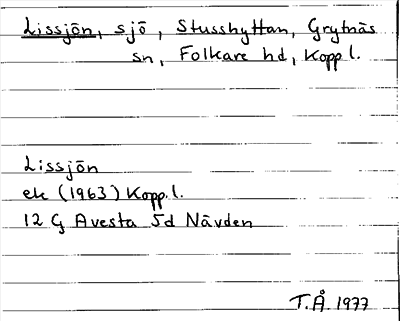 Lissjön, sjö, Stusshyttan, Grytnäs
sn, Folkare hd, Kopp l.
Lissjön
ek (1963) Kopp. l.
12 G Avesta 5d Nävden
T.Å. 1977